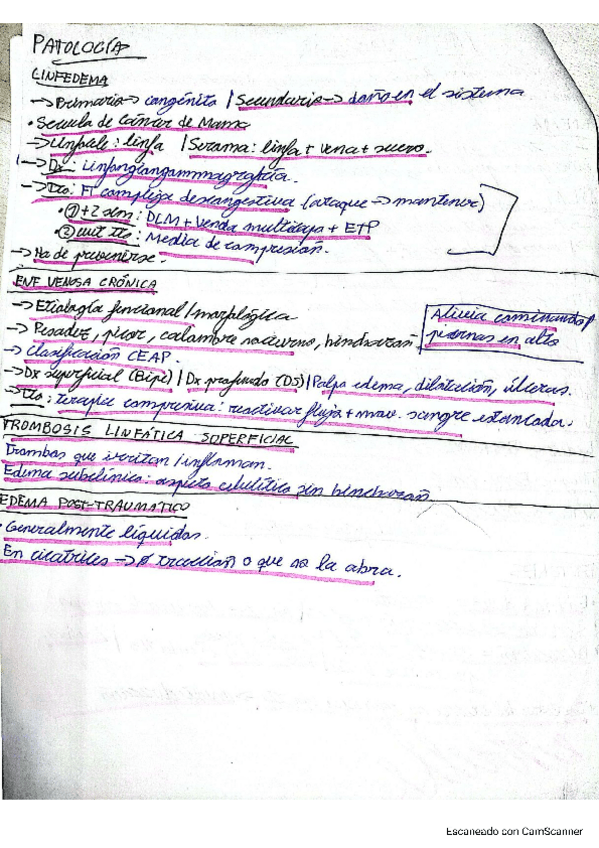 PATOLOGÍA
LINFEDEMA
→ Primario → congénito / Secundario → daños en el sistema
• Secuela de Cáncer de Mama
→ : linfa | Seroma: linfa + vena + suero.
→ Dx: Linfangiogammagrafía.
→ Tto: FT compleja descongestiva (ataque → mantener)
• ① +2 sem: DLM + Venda multicapa + ETP
• ② tto: Media de compresión.
→ Ha de prevenirse.
ENF VENOSA CRÓNICA
→ Etiología funcional / morfológica
→ Pesadez, picor, calambre nocturno, hinchazón.
Alivia caminando/
piernas en alto
→ Clasificación CEAP.
→ Dx superficial (Bipi) | Dx profundo (DJ) | Palpa edema, dilatación, úlceras.
→ Tto: terapia compresiva: reactivar flujo + mov. sangre estancada.
TROMBOSIS LINFÁTICA SUPERFICIAL
Trombos que irritan / inflaman.
Edema subclínico: aspecto celulítico sin hinchazón
EDEMA POST-TRAUMÁTICO
• Generalmente líquidos.
En cicatrices → Ø tracción o que se la abra.
Escaneado con CamScanner